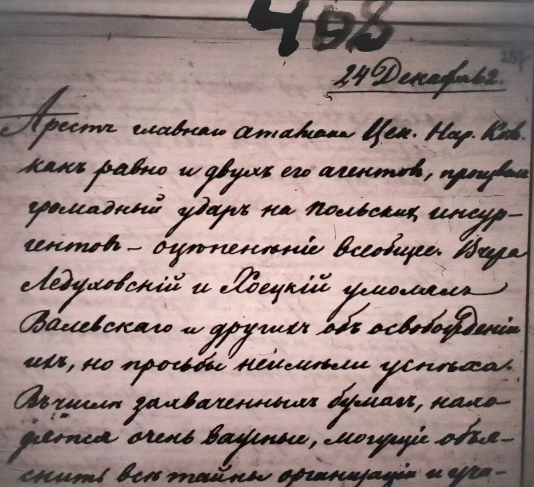 408
287
24 Декабря.
Арестъ главнаго атамана Цен. Нар. Ком.
какъ равно и двухъ его агентовъ, произвелъ
громадный ударъ на польскихъ инсур-
гентовъ – оцѣпенѣніе всеобщее. Вчера
Ледуховскій и Хоецкій умоляли
Валевскаго и другихъ объ освобожденіи
ихъ, но просьбы неимѣли успѣха.
Въ числѣ захваченныхъ бумагъ, нахо-
дятся очень важные, могущіе объя-
снить всѣ тайны организаціи и уча-